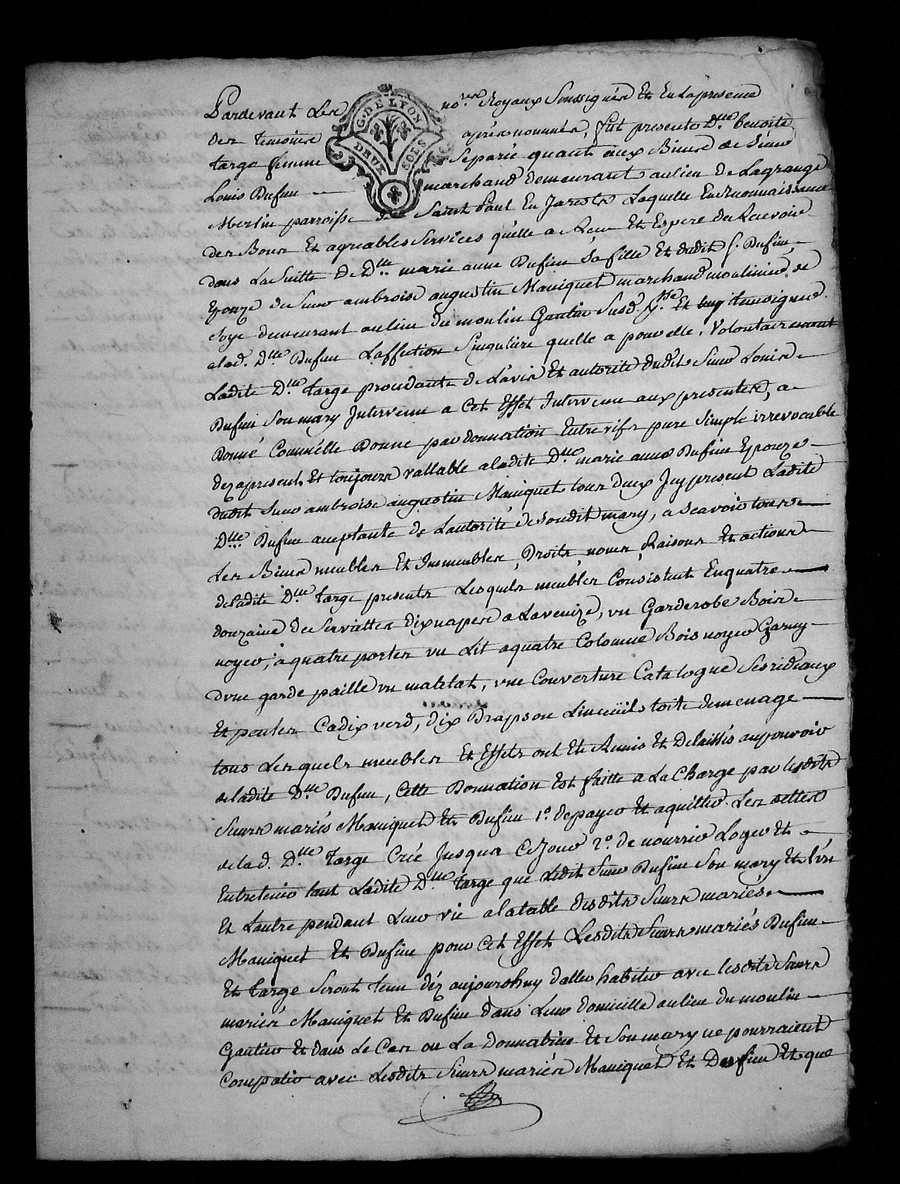 Pardevant Les no.res Royaux Soussignés Et En La presence
des temoins après nommés, fut presente D.me benoite
targe femme Separée quant aux Biens de Sieur
Louis Dufieu marchand demeurant au lieu de Lagrange
Merlin parroisse de Saint Paul En Jarests Laquelle En Reconnaissance
des Bons Et agreables Services qu'elle a Reçu Et Espere du Recevoir
dans La Suitte De D.lle marie anne Dufieu Sa fille Et dudit S. Dufieu,
Epouze du Sieur ambroise augustin Maniquet marchand moulinier de
soye demeurant au lieu du moulin Gautier Susd. p.sse Et luy temoigner
a lad. D.lle Dufieu L'affection Singuliere quelle a pour elle, Volontairement
Ladite D.me targe procedante de L'avis Et autorité dudit Sieur Louis
Dufieu Son mary Intervenu a Cet Effet Intervenu aux presentes, a
Donné Comme elle Donne par donnation Entre vifs pure Simple irrevocable
dez apresent Et toujours vallable a ladite D.me marie anne Dufieu Epouze
dudit Sieur ambroise augustin Maniquet tous deux Icy present Ladite
D.lle Dufieu acceptante de L'autorité de Sondit mary, a Scavoir tous
Les Biens meubles Et Immeubles, Droits, noms, Raisons Et actions
de ladite D.me targe presents Lesquels meubles Consistent En quatre
douzaine de Serviettes dix napes a La venize, un Garderobe Bois
noyer, a quatre portes un Lit a quatre Colonne Bois noyer Garny
d'une garde paille un matelat, une Couverture Catalogne Ses rideaux
Et pentes Cadix verd, dix Draps ou Linceuils toile de menage
tous Lesquels meubles Et Effets ont Eté Remis Et Delaissés au pouvoir
de ladite D.me Dufieu, Cette Donnation Est faitte a La Charge par lesdits
Sieurs mariés Maniquet Et Dufieu 1.o de payer Et aquitter Les dettes
de lad. D.me Targe Crée Jusqua Ce Jour 2.o de nourrir Loger Et
Entretenir tant Ladite D.me targe que Ledit Sieur Dufieu Son mary Et L'un
Et L'autre pendant Leur vie a la table desdits Sieurs mariés
Maniquet Et Dufieu pour Cet Effet Lesdits Sieurs mariés Dufieu
Et targe Seront tenu déz aujourdhuy d'aller habiter avec lesdits Sieurs
mariés Maniquet Et Dufieu dans Leur domicille au lieu du moulin
Gautier Et dans Le Cas ou La donnatrice Et Son mary ne pourraient
Compatir avec Lesdits Sieurs mariés Maniquet Et Dufieu Et que
G. DE LYON
DEUX SOLS